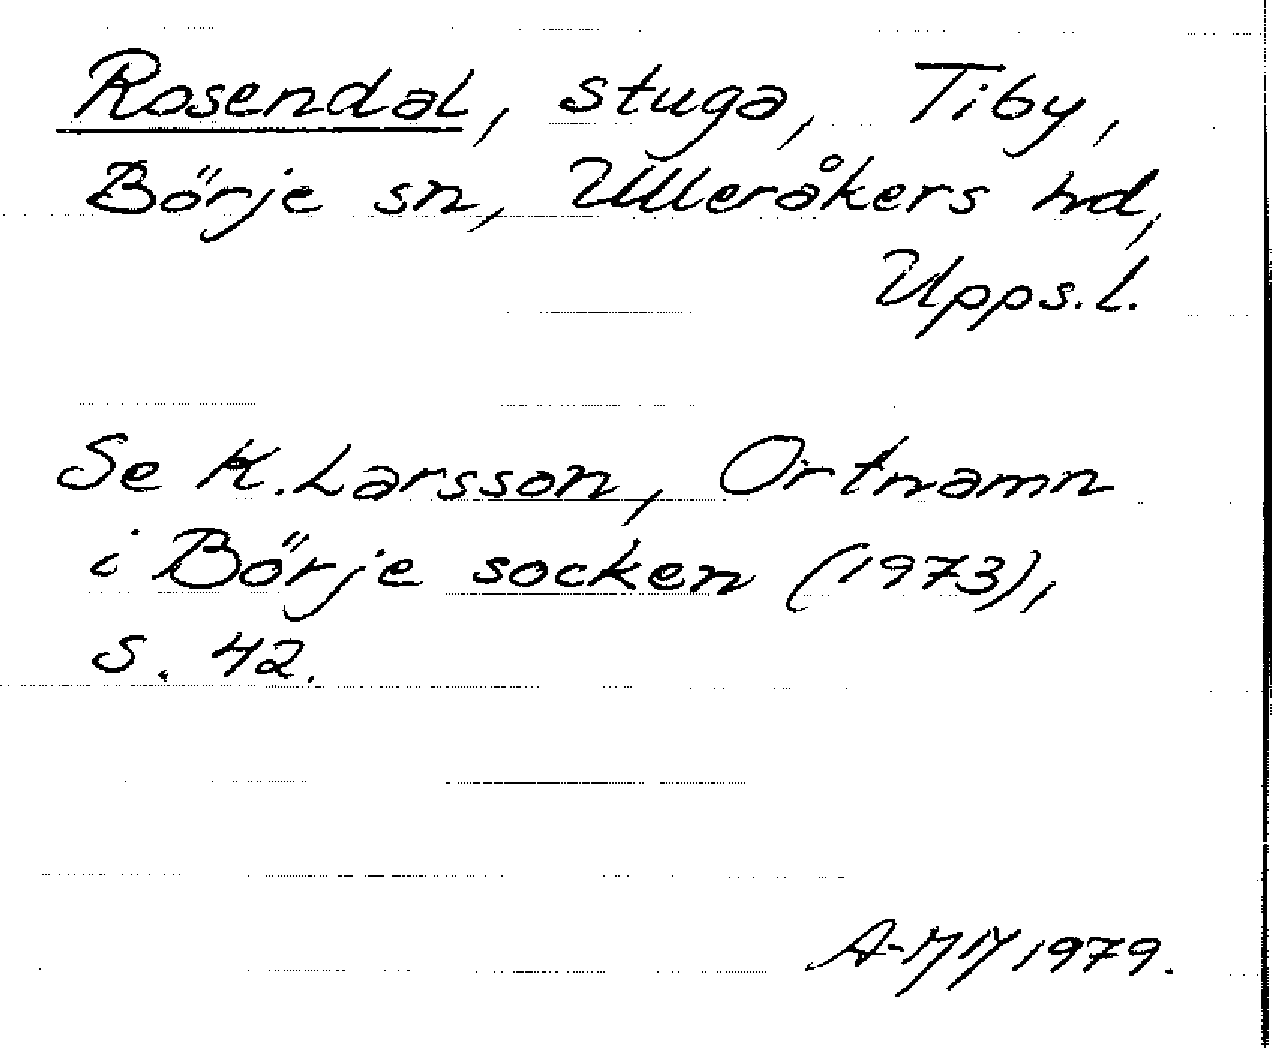 Rosendal, stuga, Tiby,
Börje sn, Ulleråkers hd,
Upps.l.
Se K. Larsson, Ortnamn
i Börje socken (1973),
s. 42.
1979.